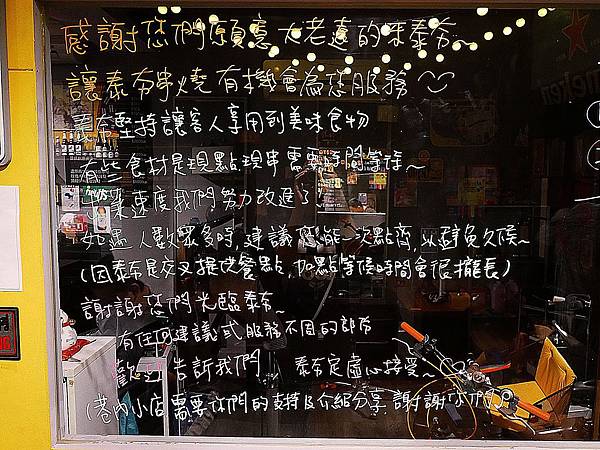 感謝您們願意大老遠的來泰夯~
讓泰夯串燒有機會為您服務
泰夯堅持讓客人享用到美味食物
有些食材是現點現串需要時間等待~
出菜速度我們努力改進了!
如遇人數眾多時,建議您能一次點齊,以避免久候~
(因泰夯是交叉提供餐點,加點等候時間會很攏長)
謝謝您們光臨泰夯~
有任何建議或服務不周的部份
歡迎告訴我們 泰夯定虛心接受~
(巷內小店需要你們的支持及介紹分享 謝謝你們)